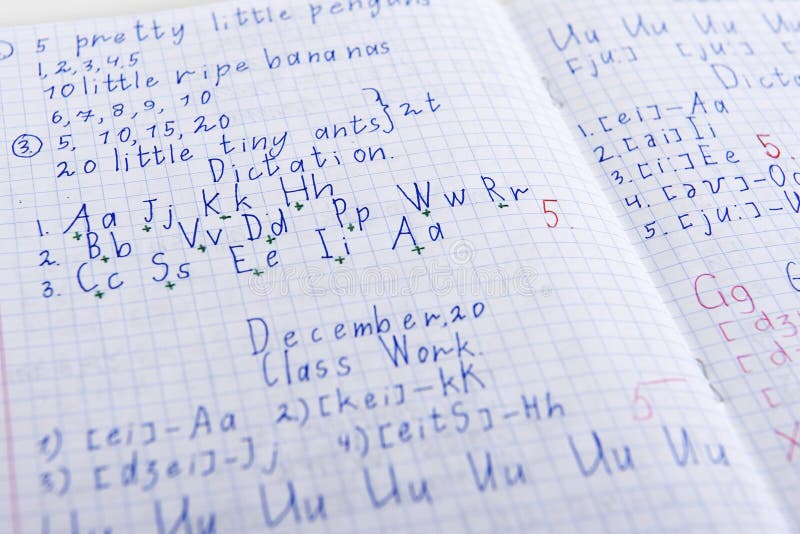 5 pretty little penguns
1, 2, 3, 4, 5
10 little ripe bananas
6, 7, 8, 9, 10
3. 5, 10, 15, 20
20 little tiny ants } 2t
Dictation.
1. Aa Jj Kk Hh
2. Bb Vv Dd Pp Ww Rr
3. Cc Ss Ee Ii Aa
5.
December, 20
Class Work.
1) [ei]-Aa 2) [kei]-kK
3) [dʒei]-Jj 4) [eitS]-Hh
5
Uu Uu Uu Uu Uu Uu Uu
Uu Uu Uu Uu
[ju:] [ju:]
1. [ei]-Aa
2. [ai] Ii
3. [i:] Ee 5.
4. [əʊ]-Oo
5. [ju:]-U
Gg
[dʒ
[dʒ
dreamstime